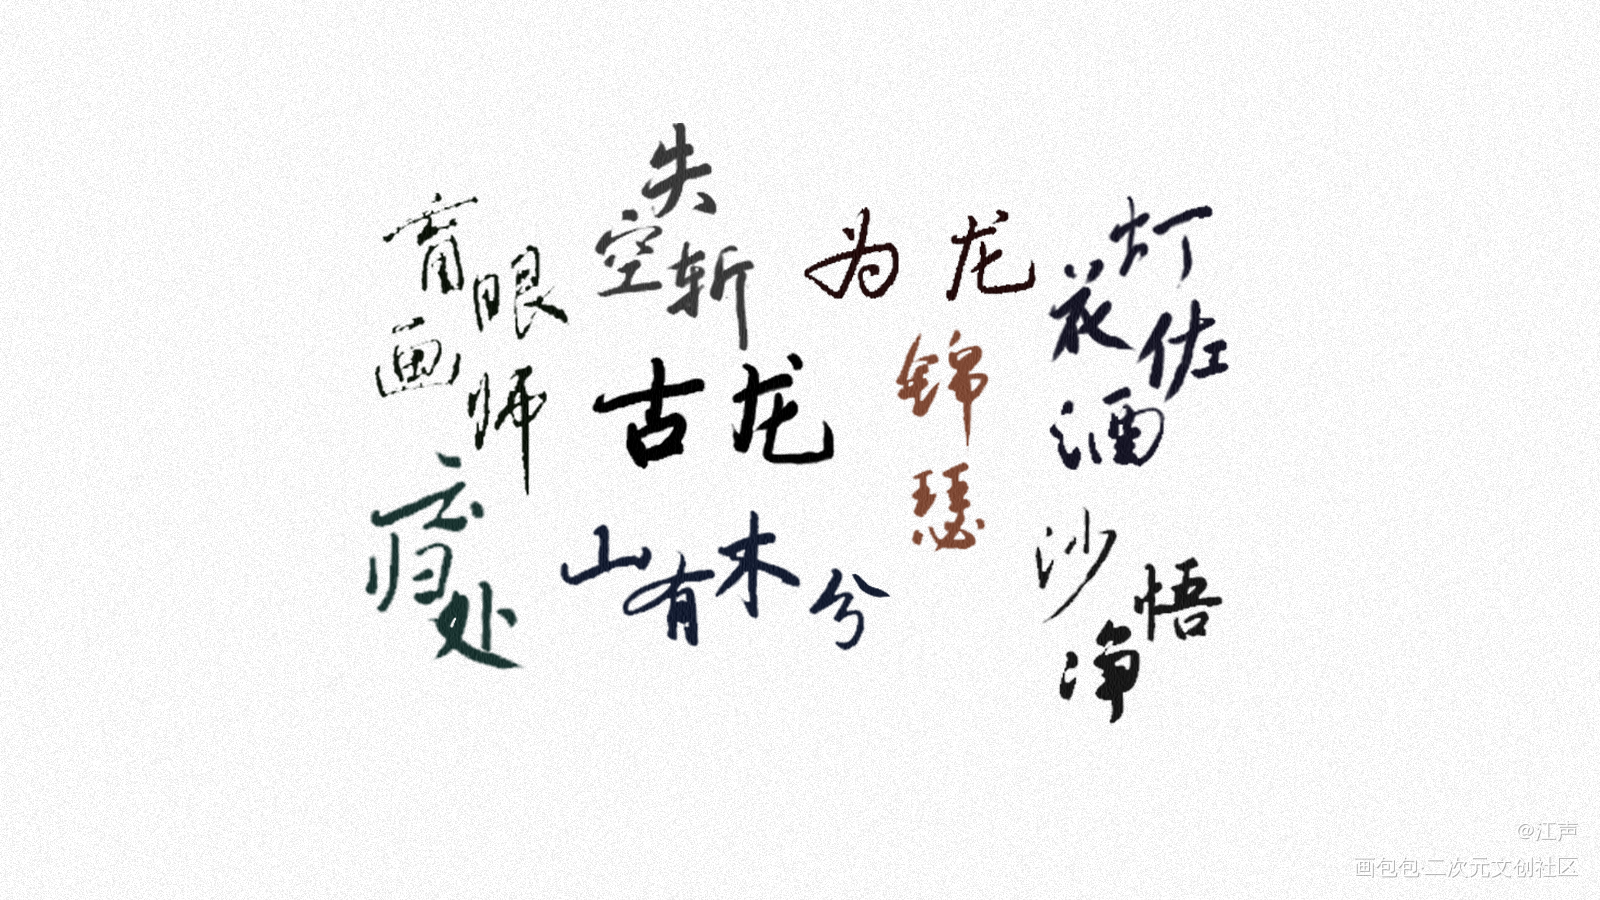 盲眼画师
失空斩
为龙
灯花佐酒
古龙
锦瑟
云归处
山有木兮
沙悟净
@江声
画包包·二次元文创社区